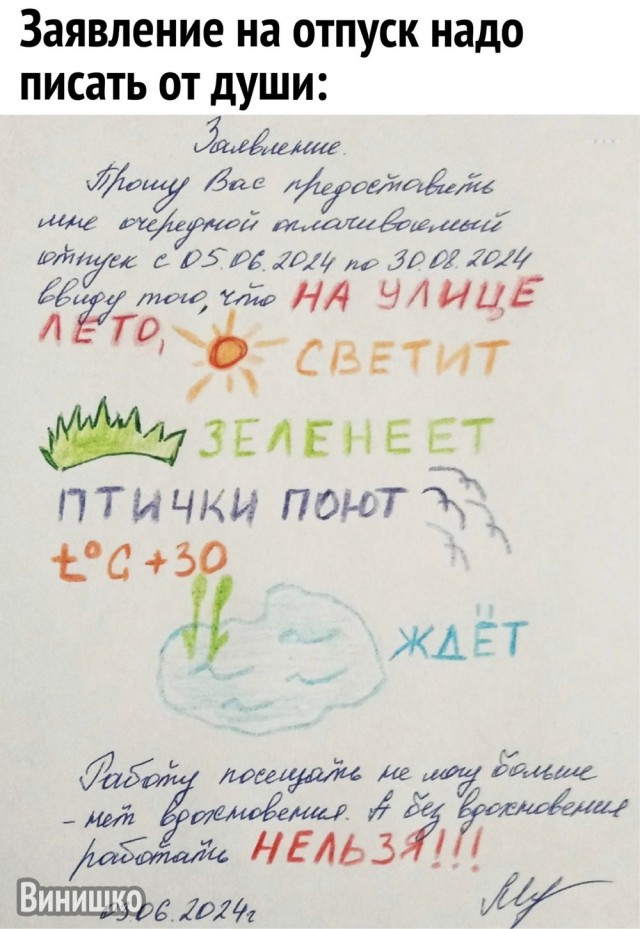 Заявление на отпуск надо
писать от души:
Заявление.
Прошу Вас предоставить
мне очередной оплачиваемый
отпуск с 05.06.2024 по 30.08.2024
ввиду того, что НА УЛИЦЕ
ЛЕТО,
СВЕТИТ
ЗЕЛЕНЕЕТ
ПТИЧКИ ПОЮТ
t°C +30
ЖДЁТ
Работу посещать не могу больше
- нет вдохновения. А без вдохновения
работать НЕЛЬЗЯ!!!
Винишко
06.2024г